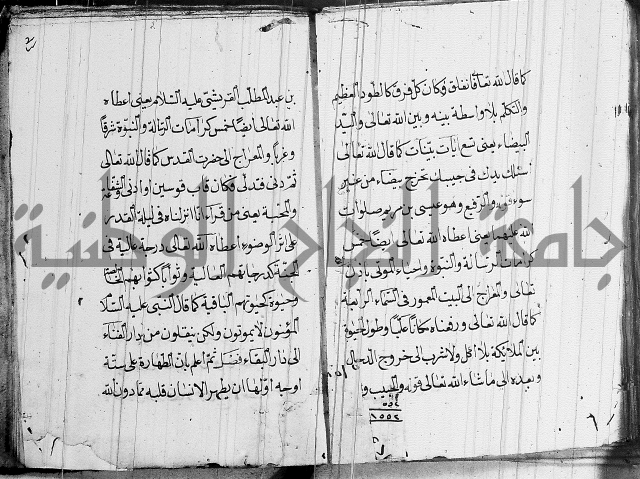 كما قال الله تعالى فانفلق فكان كل فرق كالطود العظيم
والتكلم بلا واسطة بينه وبين الله تعالى واليد
البيضاء يعني تسع ايات بينات كما قال الله تعالى
اسلك يدك في جيبك تخرج بيضاء من غير
سوء والرفيع وهو عيسى بن مريم صلوات
الله عليهما يعني اعطاه الله تعالى ايضا خمس
كرامات الرسالة والنبوة واحياء الموتى باذن
تعالى والمعراج الى البيت المعمور في السماء الرابعة
كما قال الله تعالى ورفعناه مكانا عليا وطول الحيوة
بين الملائكة بلا اكل ولا شرب الى خروج الدجال
وبعده الى ما شاء الله تعالى قوله والحبيب
١٥٥٢
بن عبد المطلب القريشي عليه السلام يعني اعطاه
الله تعالى ايضا خمس كرامات الرسالة والنبوة شرقا
وغربا والمعراج الى حضرت القدس كما قال الله تعالى
ثم دنى فتدلى فكان قاب قوسين او ادنى والشفاعة
والمحبة يعني من قراء انا انزلناه في ليلة القدر
على اثر الوضوء اعطاه الله تعالى درجة عالية في
الجنة كدرجاتهم العالية وثوابا كثوابهم
وحيوة كحيوتهم الباقية كما قال النبي عليه السلام
المؤمنون لا يموتون ولكن ينقلون من دار الفناء
الى دار البقاء فصل ثم اعلم بان الطهارة على ستة
اوجه اولها ان يطهر الانسان قلبه عما دون الله
جامعة النجاح الوطنية